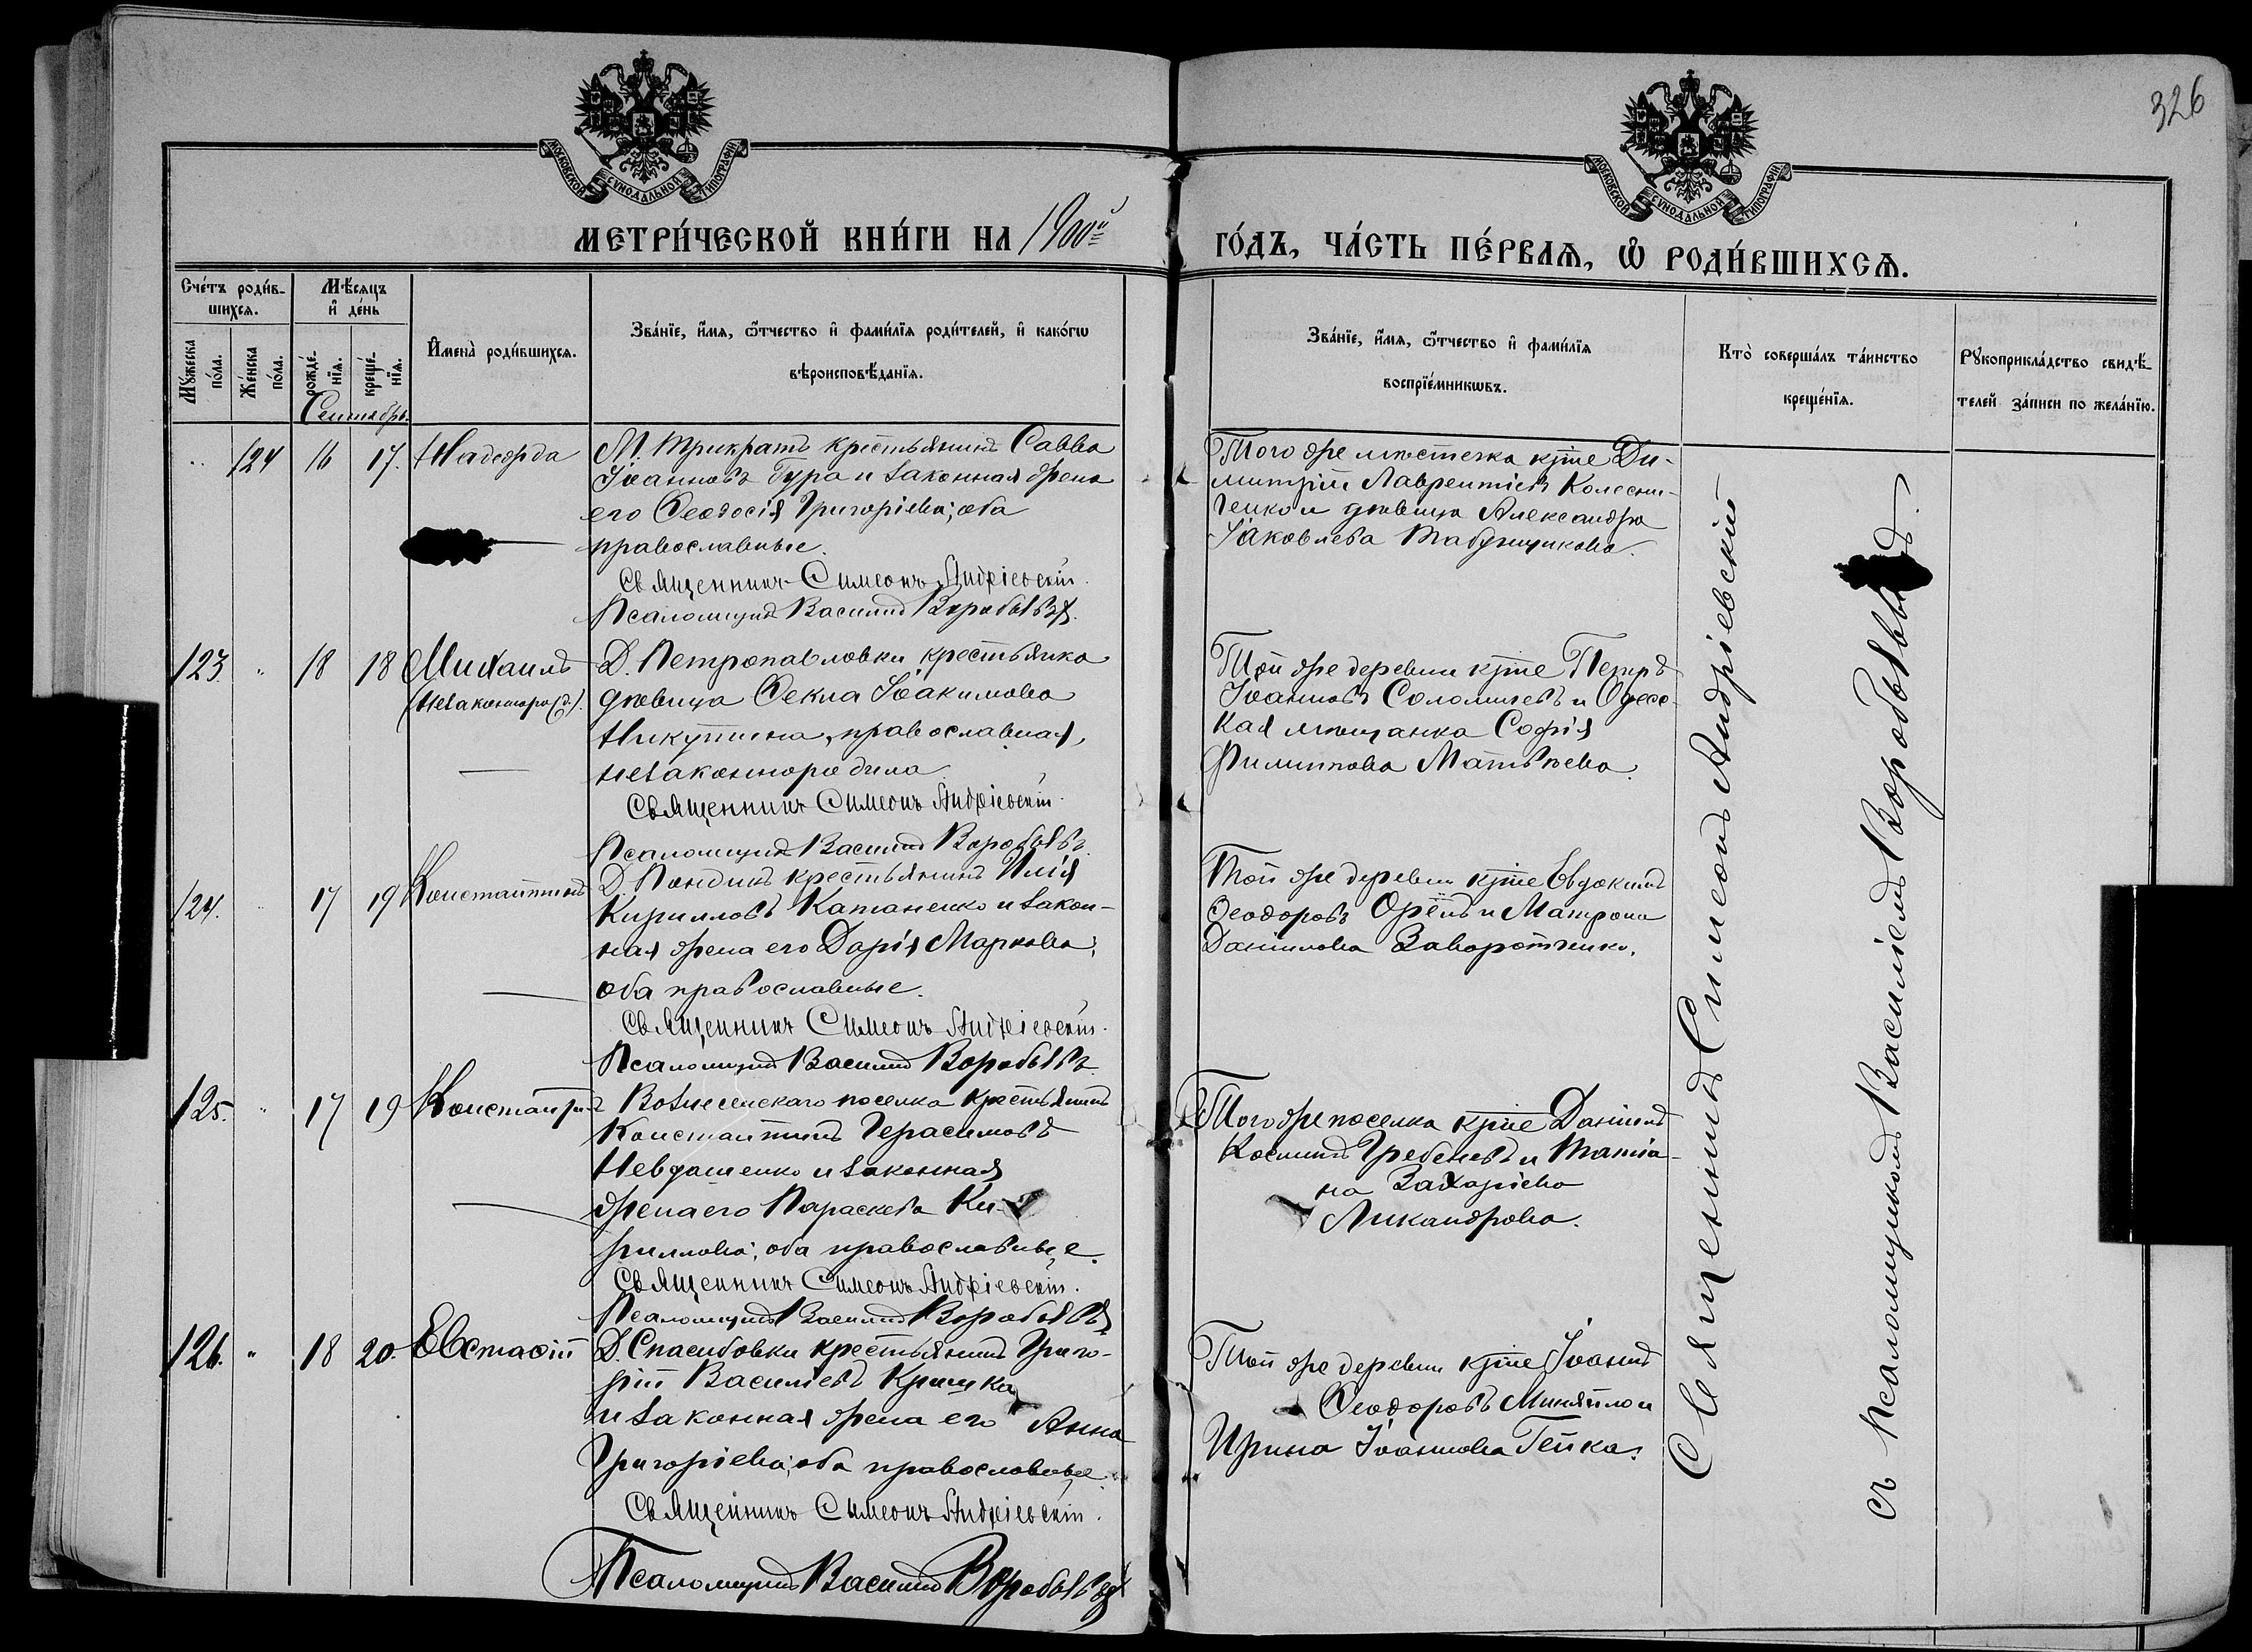 326
МОСКОВСКОЙ СѴНОДАЛЬНОЙ ТИПОГРАФІИ
МОСКОВСКОЙ СѴНОДАЛЬНОЙ ТИПОГРАФІИ
МЕТРИ́ЧЕСКОЙ КНИ́ГИ НА 1900й
ГО́ДЪ, ЧА́СТЬ ПЕ́РВАѦ, Ѽ РОДИ́ВШИХСѦ.
Сче́тъ роди́в-
шихсѧ.
Мѣ́сѧцъ
и҆ де́нь
Мꙋ́жеска
по́ла.
Же́нска
по́ла.
рожде́-
нїѧ.
креще́-
нїѧ.
И҆мена̀ роди́вшихсѧ.
Зва́нїе, и҆́мѧ, ѻ҆́тчество и҆ фами́лїѧ роди́телей, и҆ како́гѡ
вѣроисповѣ́данїѧ.
Зва́нїе, и҆́мѧ, ѻ҆́тчество и҆ фами́лїѧ
воспрїе́мникѡвъ.
Кто̀ соверша́лъ та́инство
креще́нїѧ.
Рꙋкоприкла́дство свидѣ́-
телей за́писи по жела́нїю.
Сентябрь.
„ 124 16 17. Надежда
М. Трикратъ крестьянинъ Савва
Іоанновъ Бура и законная жена
его Ѳеодосія Григоріева; оба
православные.
Священникъ Симеонъ Андріевскій.
Псаломщикъ Василій Воробьевъ.
Того же местечка кр-не Ди-
митрій Лаврентіевъ Колесни-
ченко и девица Александра
Іаковлева Табунщикова.
123. „ 18 18 Михаилъ
(незаконнорожд.).
Д. Петропавловки крестьянка
девица Ѳекла Іоакимова
Никутина, православная,
незаконнородила
Священникъ Симеонъ Андріевскій.
Псаломщикъ Василій Воробьевъ.
Той же деревни кр-не Петръ
Іоанновъ Соломичевъ и Одесс-
кая мещанка Софія
Филиппова Матвеева.
124. „ 17 19 Константинъ
Д. Пондикъ крестьянинъ Илія
Кирилловъ Катаненко и закон-
ная жена его Дарія Маркова;
оба православные.
Священникъ Симеонъ Андріевскій.
Псаломщикъ Василій Воробьевъ.
Той же деревни кр-не Евдокимъ
Ѳеодоровъ Орелъ и Матрона
Даниилова Заворотченко.
125. „ 17 19 Константинъ
Вознесенскаго поселка крестьянинъ
Константинъ Герасимовъ
Невдашенко и законная
жена его Параскева Ки-
риллова; оба православные.
Священникъ Симеонъ Андріевскій.
Псаломщикъ Василій Воробьевъ.
Того же поселка кр-не Даніилъ
Космин Гребеневъ и Татіа-
на Захаріева
Никандрова.
126. „ 18 20. Евстаѳій
Д. Спасибовки крестьянинъ Григо-
рій Василіевъ Кришка
и законная жена его Анна
Григоріева; оба православные.
Священникъ Симеонъ Андріевскій.
Псаломщикъ Василій Воробьевъ.
Той же деревни кр-не Іоаннъ
Ѳеодоровъ Миняйло и
Ирина Іоаннова Гейка.
Священникъ Симеонъ Андріевскій
съ псаломщикомъ Василіемъ Воробьевымъ.